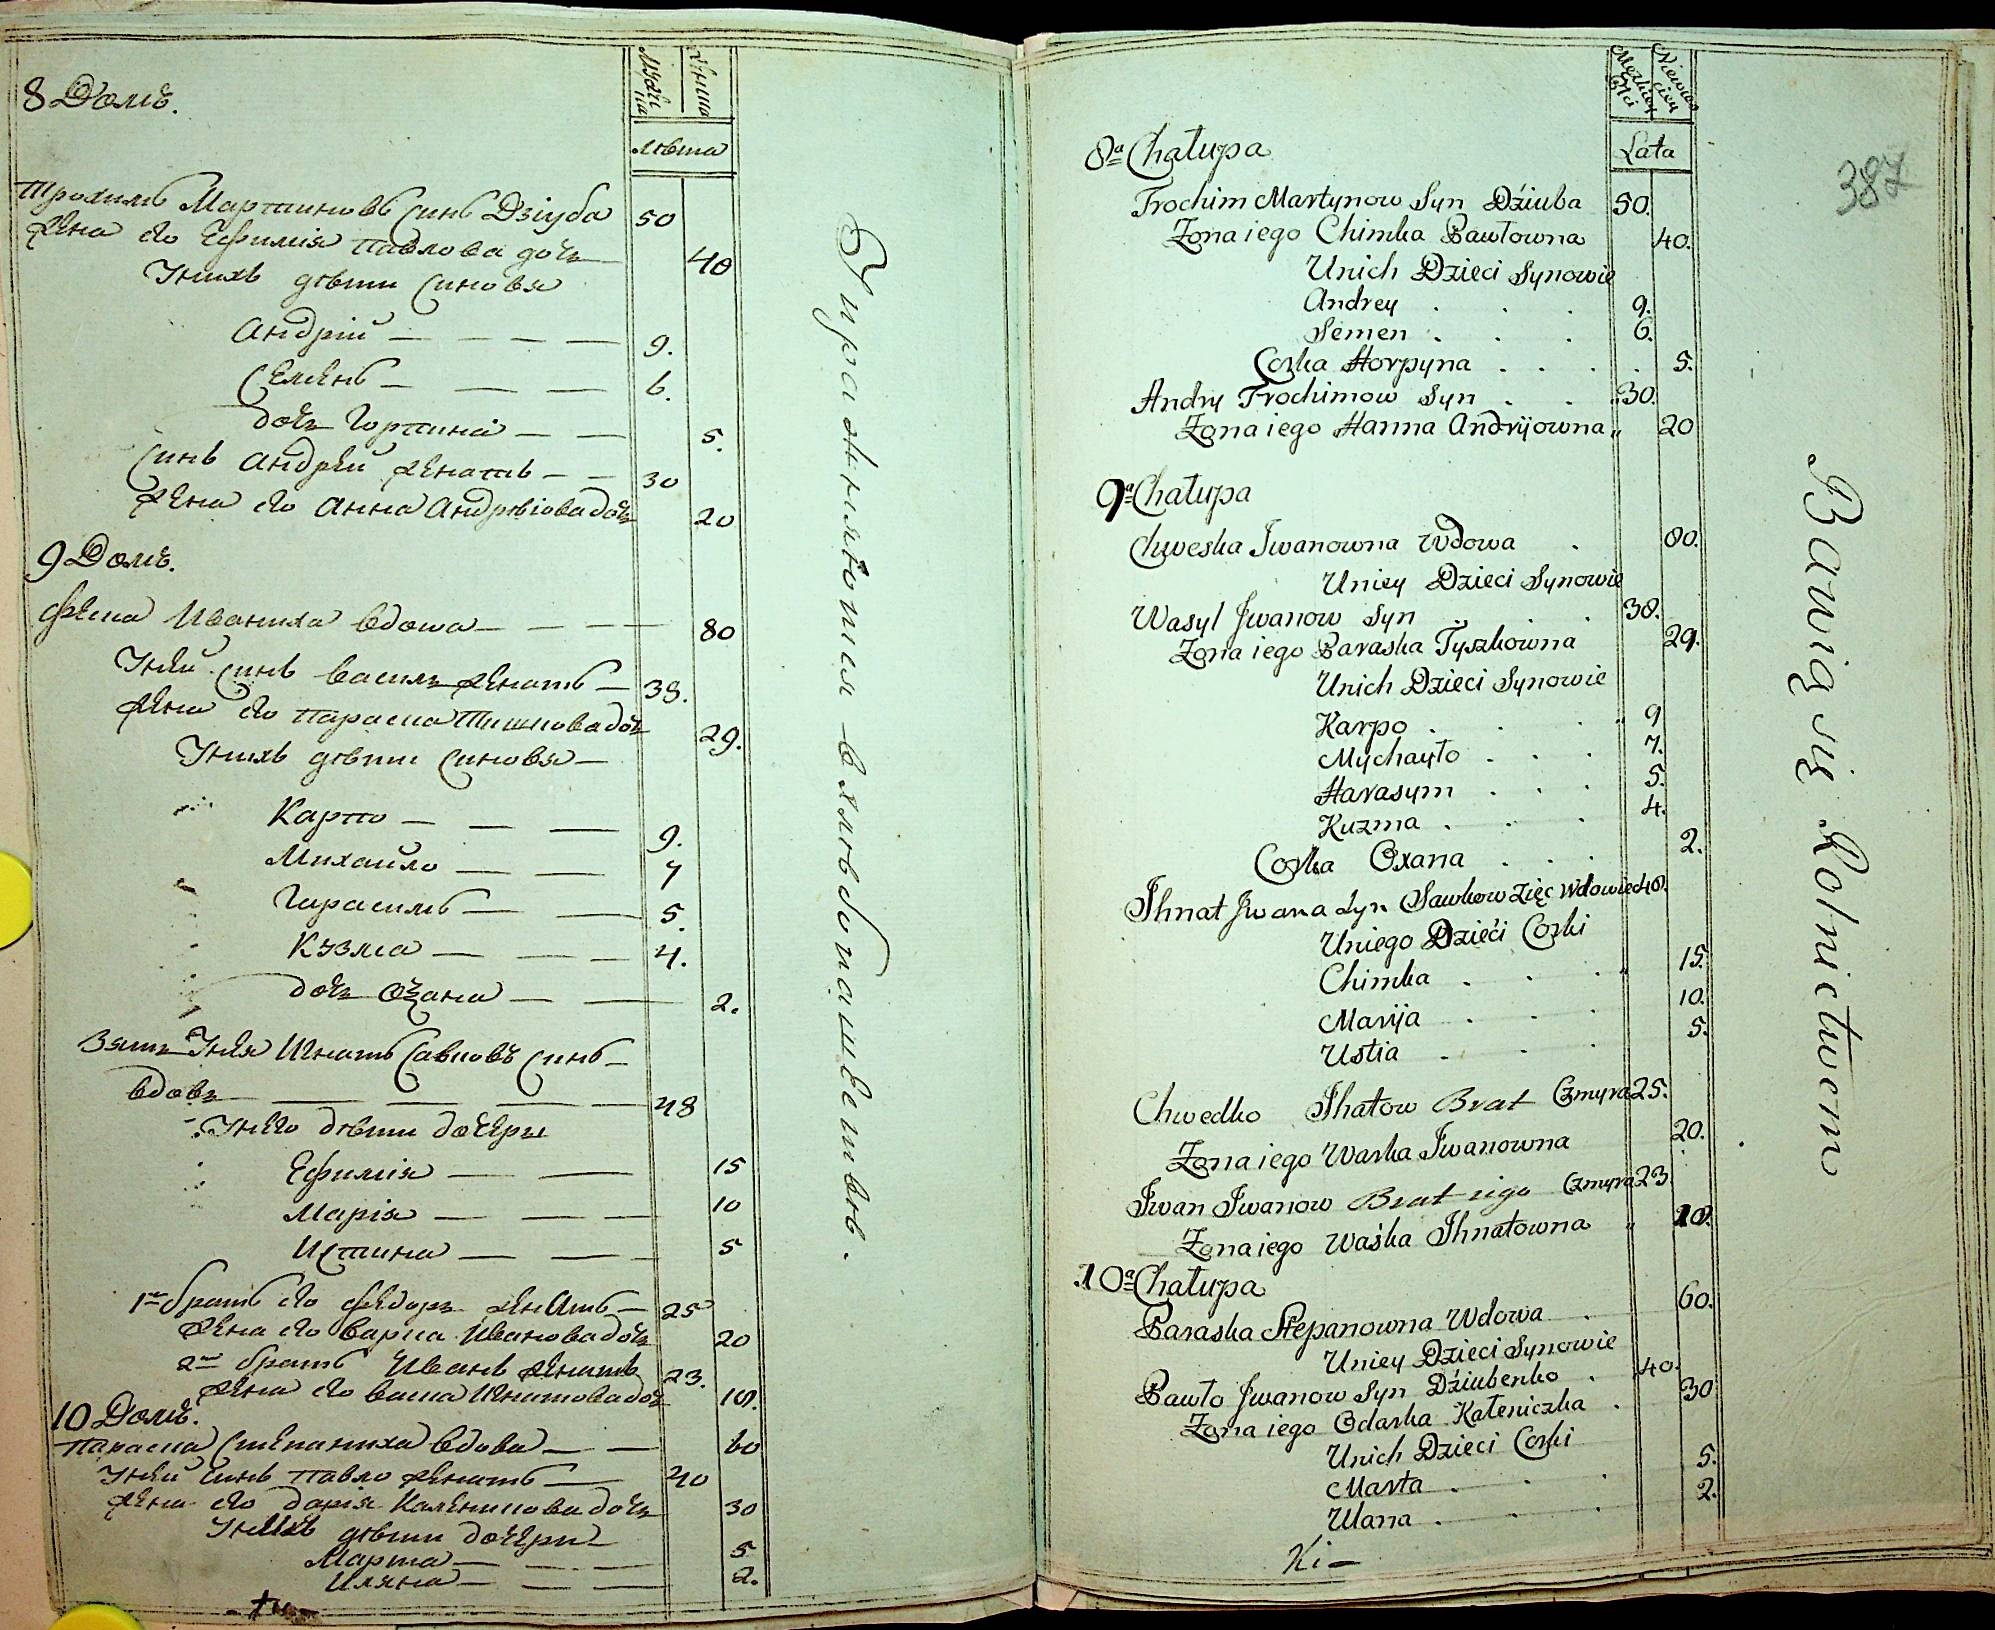 Мужи
на
Жѣнша
лѣта
8 Домъ.
Трохимъ Мартиновъ Синъ Дзіуба 50
Жена его Ефимія Павлова дочь 40
У нихъ дѣти Синовя
Андрій — — — — 9.
Семенъ — — — 6.
дочь Горпина — — 5.
Синъ Андрей женатъ — — 30
Жена его Анна Андрѣіова дочь 20
9 Домъ.
Феска Иваниха вдова — — — 80
У ней Синъ Василь женатъ — 38.
Жена его Параска Тишкова дочь 29.
У нихъ дѣти Синовя —
Карпо — — — 9.
Михайло — — 7
Герасимъ — — 5.
Кузма — — — 4.
дочь Оѯана — — 2.
Зять У нея Игнатъ Савковъ Синъ —
вдовъ — — — — 48
У него дѣти дочери
Ефимія — — 15
Марія — — — 10
Истина — — — 5
1й братъ его Федоръ женатъ — 25
Жена его Варка Иванова дочь 20
2й братъ Иванъ женатъ 23.
Жена его Васка Игнатова дочь 18.
10 Домъ.
Параска Степаниха вдова — — 60
У ней Синъ Павло женатъ — 40
Жена его Дарія Каленикова дочь 30
У нихъ дѣти дочери
Марта — — — 5
Иляна — — — 2.
Упражняются в хлѣбопашествѣ.
387
Męzkiey
Płci
Niewies
ciey
Lata
8ᵃ Chałupa
Trochim Martynow Syn Dźiuba 50.
Zona iego Chimka Pawłowna 40.
Unich Dzieci Synowie
Andrey . . . 9.
Semen . . . 6.
Corka Horpyna . . . . 5.
Andry Trochimow Syn . . „ 30.
Zona iego Hanna Andryiowna „ 20
9ᵃ Chałupa
Chweska Jwanowna Wdowa . 80.
Uniey Dzieci Synowie
Wasyl Jwanow Syn . . . 38.
Zona iego Paraska Tyszkowna 29.
Unich Dzieci Synowie
Karpo . . . „ 9
Mychayło . . . 7.
Harasym . . . 5.
Kuzma . . . 4.
Corka Oxana . . . 2.
Jhnat Jwana Syn Sawkow Zięc Wdowiec 48.
Uniego Dzieći Corki
Chimka . . . „ 15.
Maryja . . . 10.
Ustia . . . 5.
Chwedko Jhatow Brat Czmyra 25.
Zona iego Warka Jwanowna 20.
Jwan Jwanow Brat iego Czmyra 23.
Zona iego Waśka Jhnatowna „ 18.
10ᵃ Chałupa
Paraska Stepanowna Wdowa . 60.
Uniey Dzieci Synowie
Pawło Jwanow Syn Dźiubenko . 40.
Zona iego Odarka Kałeniczka . 30
Unich Dzieci Corki
Marta . . . 5.
Ulana . . . 2.
Ki –
Bawią się Rolnictwem